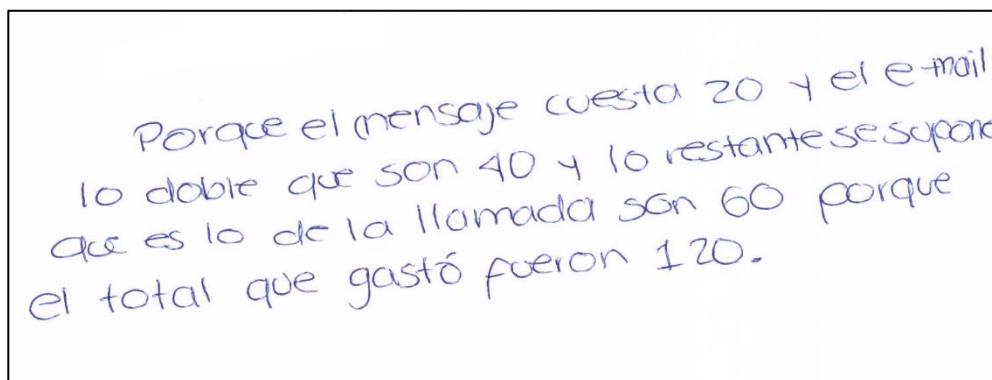 Porque el mensaje cuesta 20 y el e-mail
lo doble que son 40 y lo restante se supone
que es lo de la llamada son 60 porque
el total que gastó fueron 120.